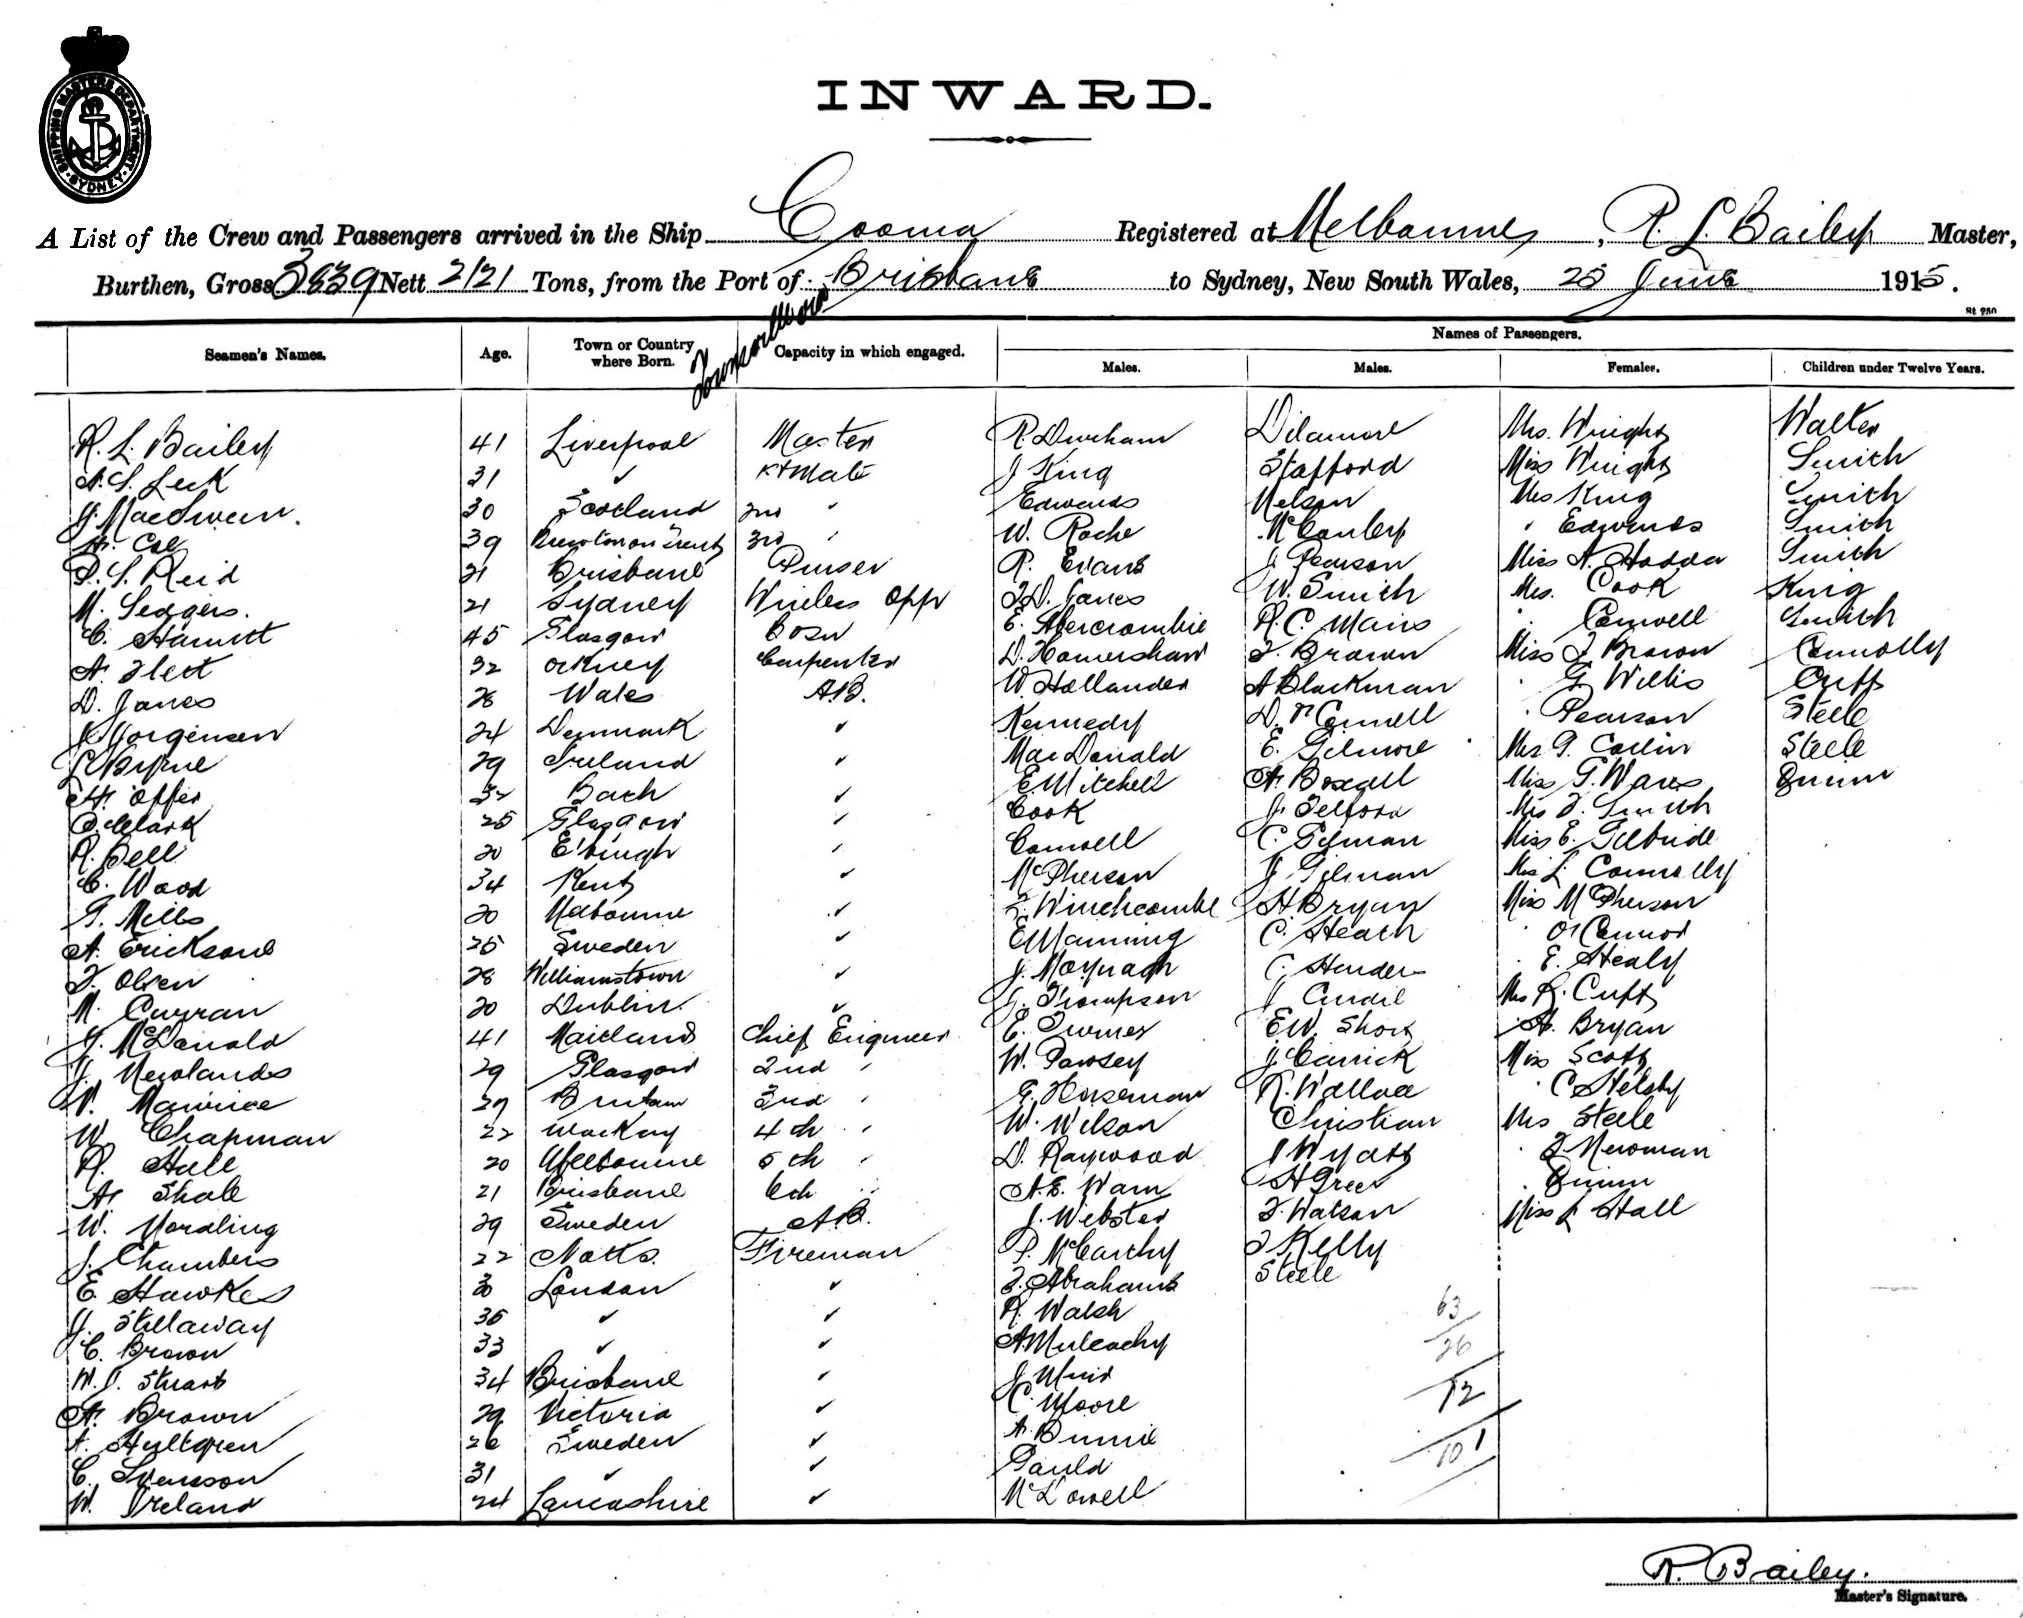 SHIPPING MASTERS DEPARTMENT SYDNEY
INWARD.
A List of the Crew and Passengers arrived in the Ship Cooma Registered at Melbourne, R. L. Bailey Master,
Burthen, Gross 3839 Nett 2121 Tons, from the Port of Brisbane to Sydney, New South Wales, 25 June 1915.
St 250
Names of Passengers.
Seamen's Names. Age. Town or Country where Born. Capacity in which engaged. Males. Males. Females. Children under Twelve Years.
R. L. Bailey 41 Liverpool Master R. Durham Dilamore Mrs. Wright Walter
A. S. Leck 31 " 1st Mate J King Stafford Miss Wright Smith
J. MacSween. 30 Scotland 2nd " Edwards Nelson Mrs King Smith
39 3rd " W. Roche McCauley " Edwards Smith
Reid 21 Brisbane Purser R. Evans J Pearson Miss A. Hodda Smith
M. Seggers. 21 Sydney Wireless Oppr Jones W. Smith Mrs. Cook King
C. 45 Glasgow Bosn E. Abercrombie R. C. Mains " Conwell Smith
A. Flett 32 Orkney Carpenter D. Homershaw F. Brown Miss J Brown Connolly
D. Jones 28 Wales A.B. W. Hollander A Blackman " G. Willis Cuff
Jorgensen 24 Denmark " Kennedy D. O'Connell " Pearson Steele
Byrne 29 Ireland " MacDonald E. Gilmore Mrs G. Carlin Steele
H. Offer 32 Bath " E. Mitchell A. Boxall Miss G. Wares Quinn
Clark 25 Glasgow " Cook J. Telford Mrs J. Smith
R. Bell 20 E'burgh " Conwell C. Gilman Miss E. Gilbride
C. Wood 34 Kent " McPherson J Gilman Mrs L. Connolly
G. Mills 20 Melbourne " F. Winchcombe H. Bryan Miss M Pherson
A. Erickson 25 Sweden " E Manning C. Heath " O'Connor
F. Olsen 28 Williamstown " J. Moynagh C. Hender " E. Healy
M. Curran 20 Dublin. " G. Thompson J Mrs R. Cuff
J. McDonald 41 Maitland Chief Engineer E. Turner E.W. Short " A. Bryan
J. Newlands 29 Glasgow 2nd " W. Pawsey J Carrick Miss Scott
Maurice 29 3rd " G. Horseman R. Wallace " C Helsby
W. Chapman 22 Mackay 4th " W. Wilson Christian Mrs Steele
R. Hall 20 Melbourne 5th " D. Raywood Wyatt " J Newman
A. Shale 21 Brisbane 6th " A. E. Warn H Green " Quinn
W. Nordling 29 Sweden A.B. J. Webster F. Watson Miss L Hall
J. Chambers 22 Notts. Fireman P. McCarthy J Kelly
E. Hawkes 30 London " J. Abrahams Steele
J. Stillaway 36 " " R. Walsh 63
C. Brown 33 " " A Mulcachy 26
W. J. Stuart 34 Brisbane " J Muir 12
A. Brown 29 Victoria " C. Moore
A. Hultgren 26 Sweden " A. Binnie 101
C. Svensson 31 " " Gauld
W. Ireland 24 Lancashire " McDowell
R. Bailey.
Master's Signature.